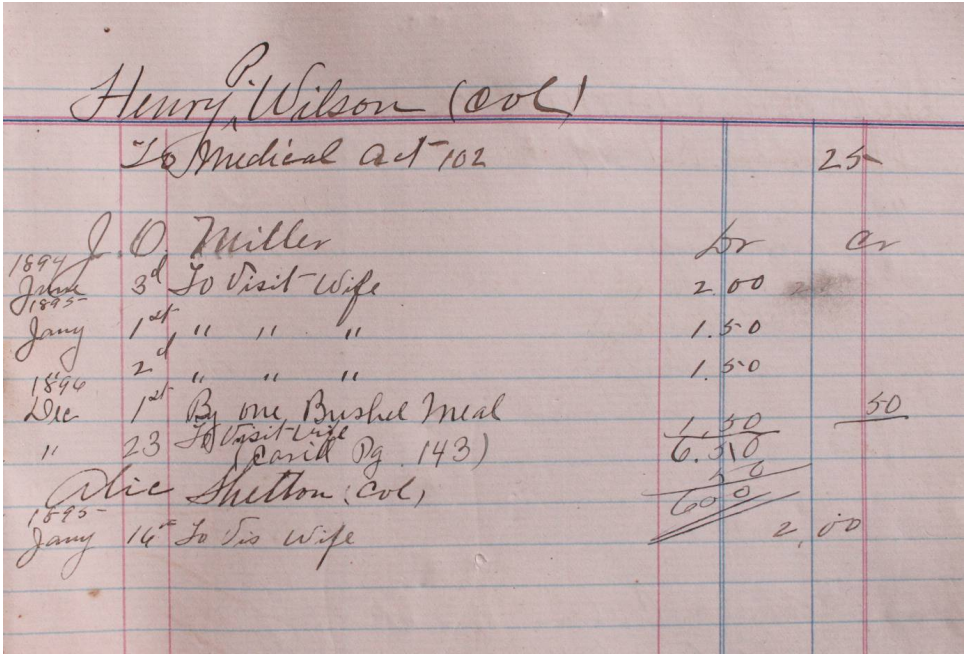 Henry P. Wilson (Col)
To Medical Act 102 25
J. O. Miller Dr Cr
1894
June 3d To Visit Wife 2.00
1895
Jany 1st " " " 1.50
" 2d " " " 1.50
1896
Dec 1st By one Bushel Meal 50
" 23 To Visit Wife 1.50
(Carid Pg. 143) 6.50
50
Alic Shelton (Col) 600
1895
Jany 16 To Vis Wife 2.00